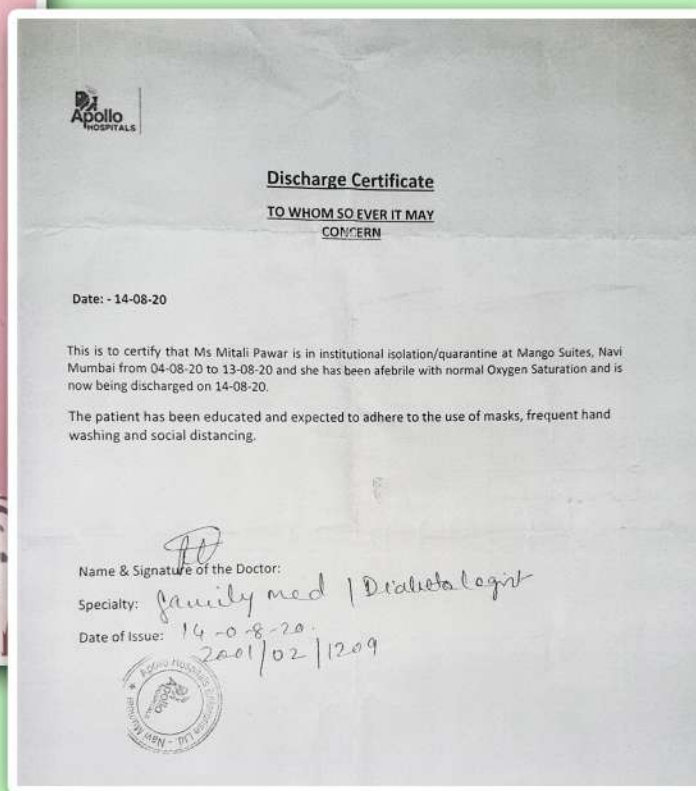 Apollo
HOSPITALS
Discharge Certificate
TO WHOM SO EVER IT MAY
CONCERN
Date: - 14-08-20
This is to certify that Ms Mitali Pawar is in institutional isolation/quarantine at Mango Suites, Navi
Mumbai from 04-08-20 to 13-08-20 and she has been afebrile with normal Oxygen Saturation and is
now being discharged on 14-08-20.
The patient has been educated and expected to adhere to the use of masks, frequent hand
washing and social distancing.
Name & Signature of the Doctor:
Specialty: family med | Diabetologist
Date of Issue: 14-0-8-20.
2001/02/1209
Apollo Hospitals Enterprise Ltd. - Navi Mumbai